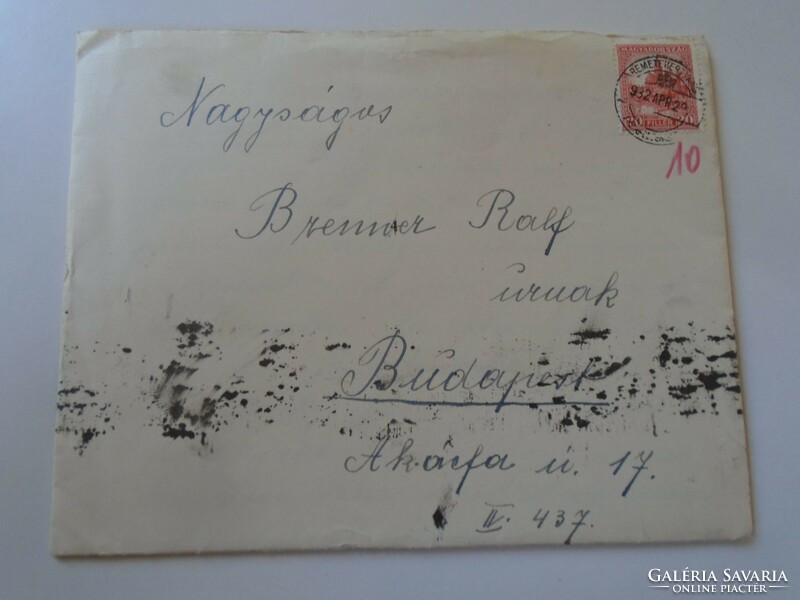 MAGYARORSZÁG
932 APR 29
FILLÉR
10
Nagyságos
Brenner Ralf
úrnak
Budapest
Akácfa ú. 17.
IV. 437.
GALÉRIA SAVARIA
ONLINE PIACTÉR